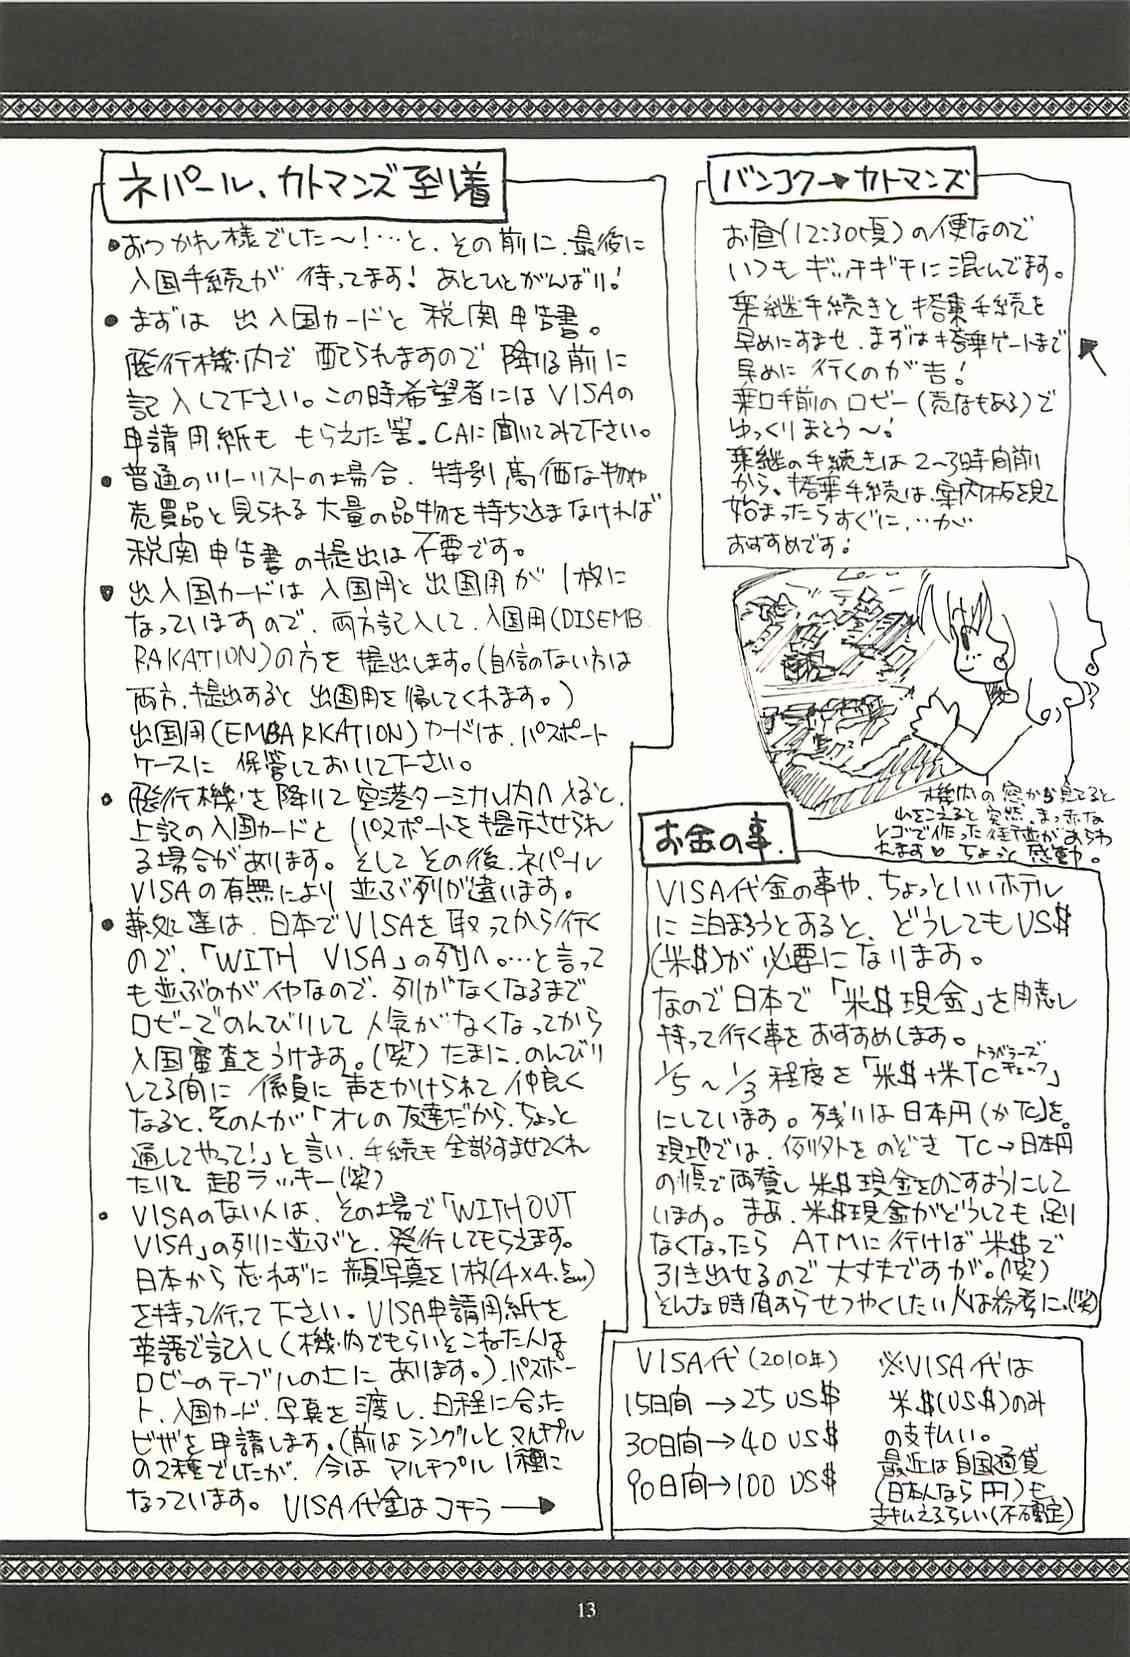 バンコク→カトマンズ
お昼(12:30頃)の便なので
いつもギッチギチに混んでます。
乗継手続きと搭乗手続を
早めにすませ、まずは搭乗ゲートまで
早めに行くのが吉!
乗口手前のロビー(売店もある)で
ゆっくりまとう〜!
乗継の手続きは2〜3時間前
から、搭乗手続は、案内板を見て
始まったらすぐに、…が
おすすめです!
機内の窓から見てると
山をこえると突然、まっ赤な
レゴで作った街並があらわ
れます♡ ちょっと感動。
ネパール、カトマンズ到着
●おつかれ様でした〜!…と、その前に、最後に
入国手続が待ってます!あとひとがんばり!
●まずは 出入国カードと 税関申告書。
飛行機内で 配られますので 降りる前に
記入して下さい。この時希望者にはVISAの
申請用紙も もらえた筈。CAに聞いてみて下さい。
●普通のツーリストの場合、特別高価な物や
売買品と見られる大量の品物を持ち込まなければ
税関申告書の提出は不要です。
●出入国カードは入国用と出国用が1枚に
なっていますので、両方記入して、入国用(DISEMB
RAKATION)の方を提出します。(自信のない方は
両方、提出すると出国用を帰してくれます。)
出国用(EMBARKATION)カードは、パスポート
ケースに 保管しておいて下さい。
●飛行機を降りて空港ターミナル内へ入ると、
上記の入国カードとパスポートを提示させられ
る場合があります。そしてその後、ネパール
VISAの有無により 並ぶ列が違います。
●弊処達は、日本でVISAを取ってから行く
ので、「WITH VISA」の列へ。…と言って
も並ぶのがイヤなので、列がなくなるまで
ロビーでのんびりして 人気がなくなってから
入国審査をうけます。(笑)たまに、のんびり
してる間に 係員に声をかけられて仲良く
なると、その人が「オレの友達だから、ちょっと
通してやって!」と言い、手続も全部すませてくれ
たりして 超ラッキー(笑)
●VISAのない人は、その場で「WITHOUT
VISA」の列に並ぶと、発行してもらえます。
日本から忘れずに 顔写真を1枚(4×4.5cm)
を持って行って下さい。VISA申請用紙を
英語で記入し(機内でもらいそこねた人は
ロビーのテーブルの上に あります。)、パスポー
ト、入国カード、写真を渡し、日程に合った
ビザを申請します。(前はシングルとマルチプル
の2種でしたが、今は マルチプル1種に
なっています。 VISA代金はコチラ→
お金の事。
VISA代金の事や、ちょっといいホテル
に泊まろうとすると、どうしてもUS$
(米$)が必要になります。
なので日本で「米$現金」を用意し
持って行く事をおすすめします。
1/5〜1/3程度を「米$+米TCトラベラーズチェック」
にしています。残りは日本円(かTC)を。
現地では、例外をのぞき TC→日本円
の順で両替し 米$現金をのこすようにして
います。まあ、米$現金がどうしても足り
なくなったら ATMに行けば米$で
引き出せるので大丈夫ですが。(笑)
そんな時間あらせつやくしたい人は参考に。(笑)
VISA代(2010年)
15日間→25 US$
30日間→40 US$
90日間→100 US$
※VISA代は
米$(US$)のみ
の支払い。
最近は自国通貨
(日本人なら円)も
支払えるらしい(不確定)
13